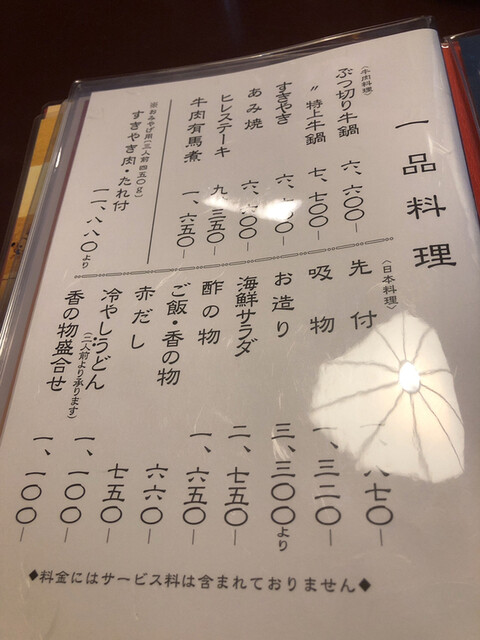 一品料理
〈牛肉料理〉
ぶつ切り牛鍋 六、六〇〇−
〃 特上牛鍋 七、七〇〇−
すきやき 六、〇〇−
あみ焼 六、〇〇−
ヒレステーキ 九、三五〇−
牛肉有馬煮 一、六五〇−
※おみやげ用(三人前 四五〇g)
すきやき肉・たれ付 一一、八八〇より
〈日本料理〉
先付 七〇−
吸物 一、三二〇−
お造り 三、三〇〇より
海鮮サラダ 二、七五〇−
酢の物 一、六五〇−
ご飯・香の物 六六〇−
赤だし 七五〇−
冷やしうどん (二人前より承ります) 一、一〇〇−
香の物盛合せ 一、一〇〇−
◆料金にはサービス料は含まれておりません◆